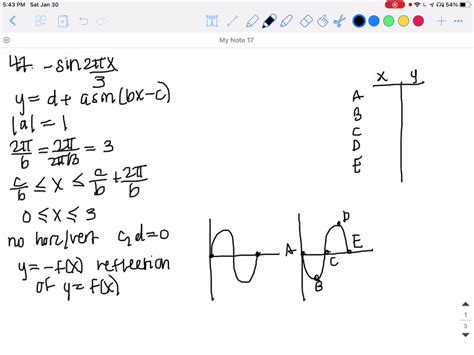 5:43 PM Sat Jan 30
54%
My Note 17
47. -sin 2πx/3
y = d + a sin(bx-c)
|a| = 1
2π/b = 2π/2π/3 = 3
c/b ≤ x ≤ a/b + 2π/b
0 ≤ x ≤ 3
no horz/vert c,d=0
y = -f(x) reflection
of y = f(x)
x y
A
B
C
D
E
A B C D E
1
3